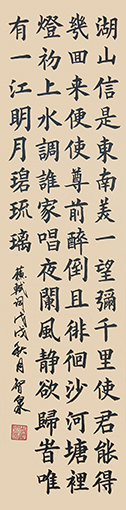 湖山信是東南美一望彌千里使君能得
幾回来便使尊前醉倒且徘徊沙河塘裡
燈初上水調誰家唱夜闌風静欲歸昔唯
有一江明月碧琉璃
蘇軾詞戊戌秋月智泉